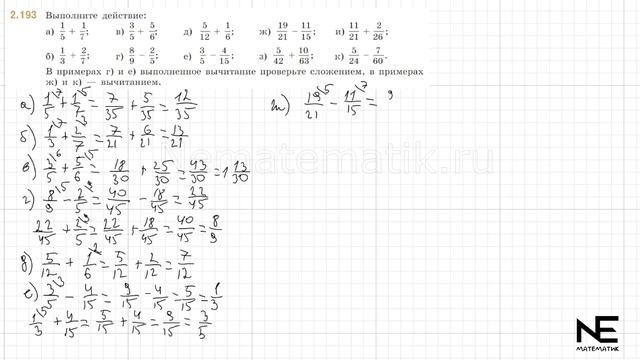 2.193 Выполните действие:
а) 1/5 + 1/7; в) 3/5 + 5/6; д) 5/12 + 1/6; ж) 19/21 − 11/15; и) 11/21 + 2/26;
б) 1/3 + 2/7; г) 8/9 − 2/5; е) 3/5 − 4/15; з) 5/42 + 10/63; к) 5/24 − 7/60.
В примерах г) и е) выполненное вычитание проверьте сложением, в примерах
ж) и к) — вычитанием.
а) 1/5 + 1/7 = 7/35 + 5/35 = 12/35
б) 1/3 + 2/7 = 7/21 + 6/21 = 13/21
в) 3/5 + 5/6 = 18/30 + 25/30 = 43/30 = 1 13/30
г) 8/9 − 2/5 = 40/45 − 18/45 = 22/45
22/45 + 2/5 = 22/45 + 18/45 = 40/45 = 8/9
д) 5/12 + 1/6 = 5/12 + 2/12 = 7/12
е) 3/5 − 4/15 = 9/15 − 4/15 = 5/15 = 1/3
1/3 + 4/15 = 5/15 + 4/15 = 9/15 = 3/5
ж) 19/21 − 11/15 = 9
Nematematik.ru
NE
МАТЕМАТИК